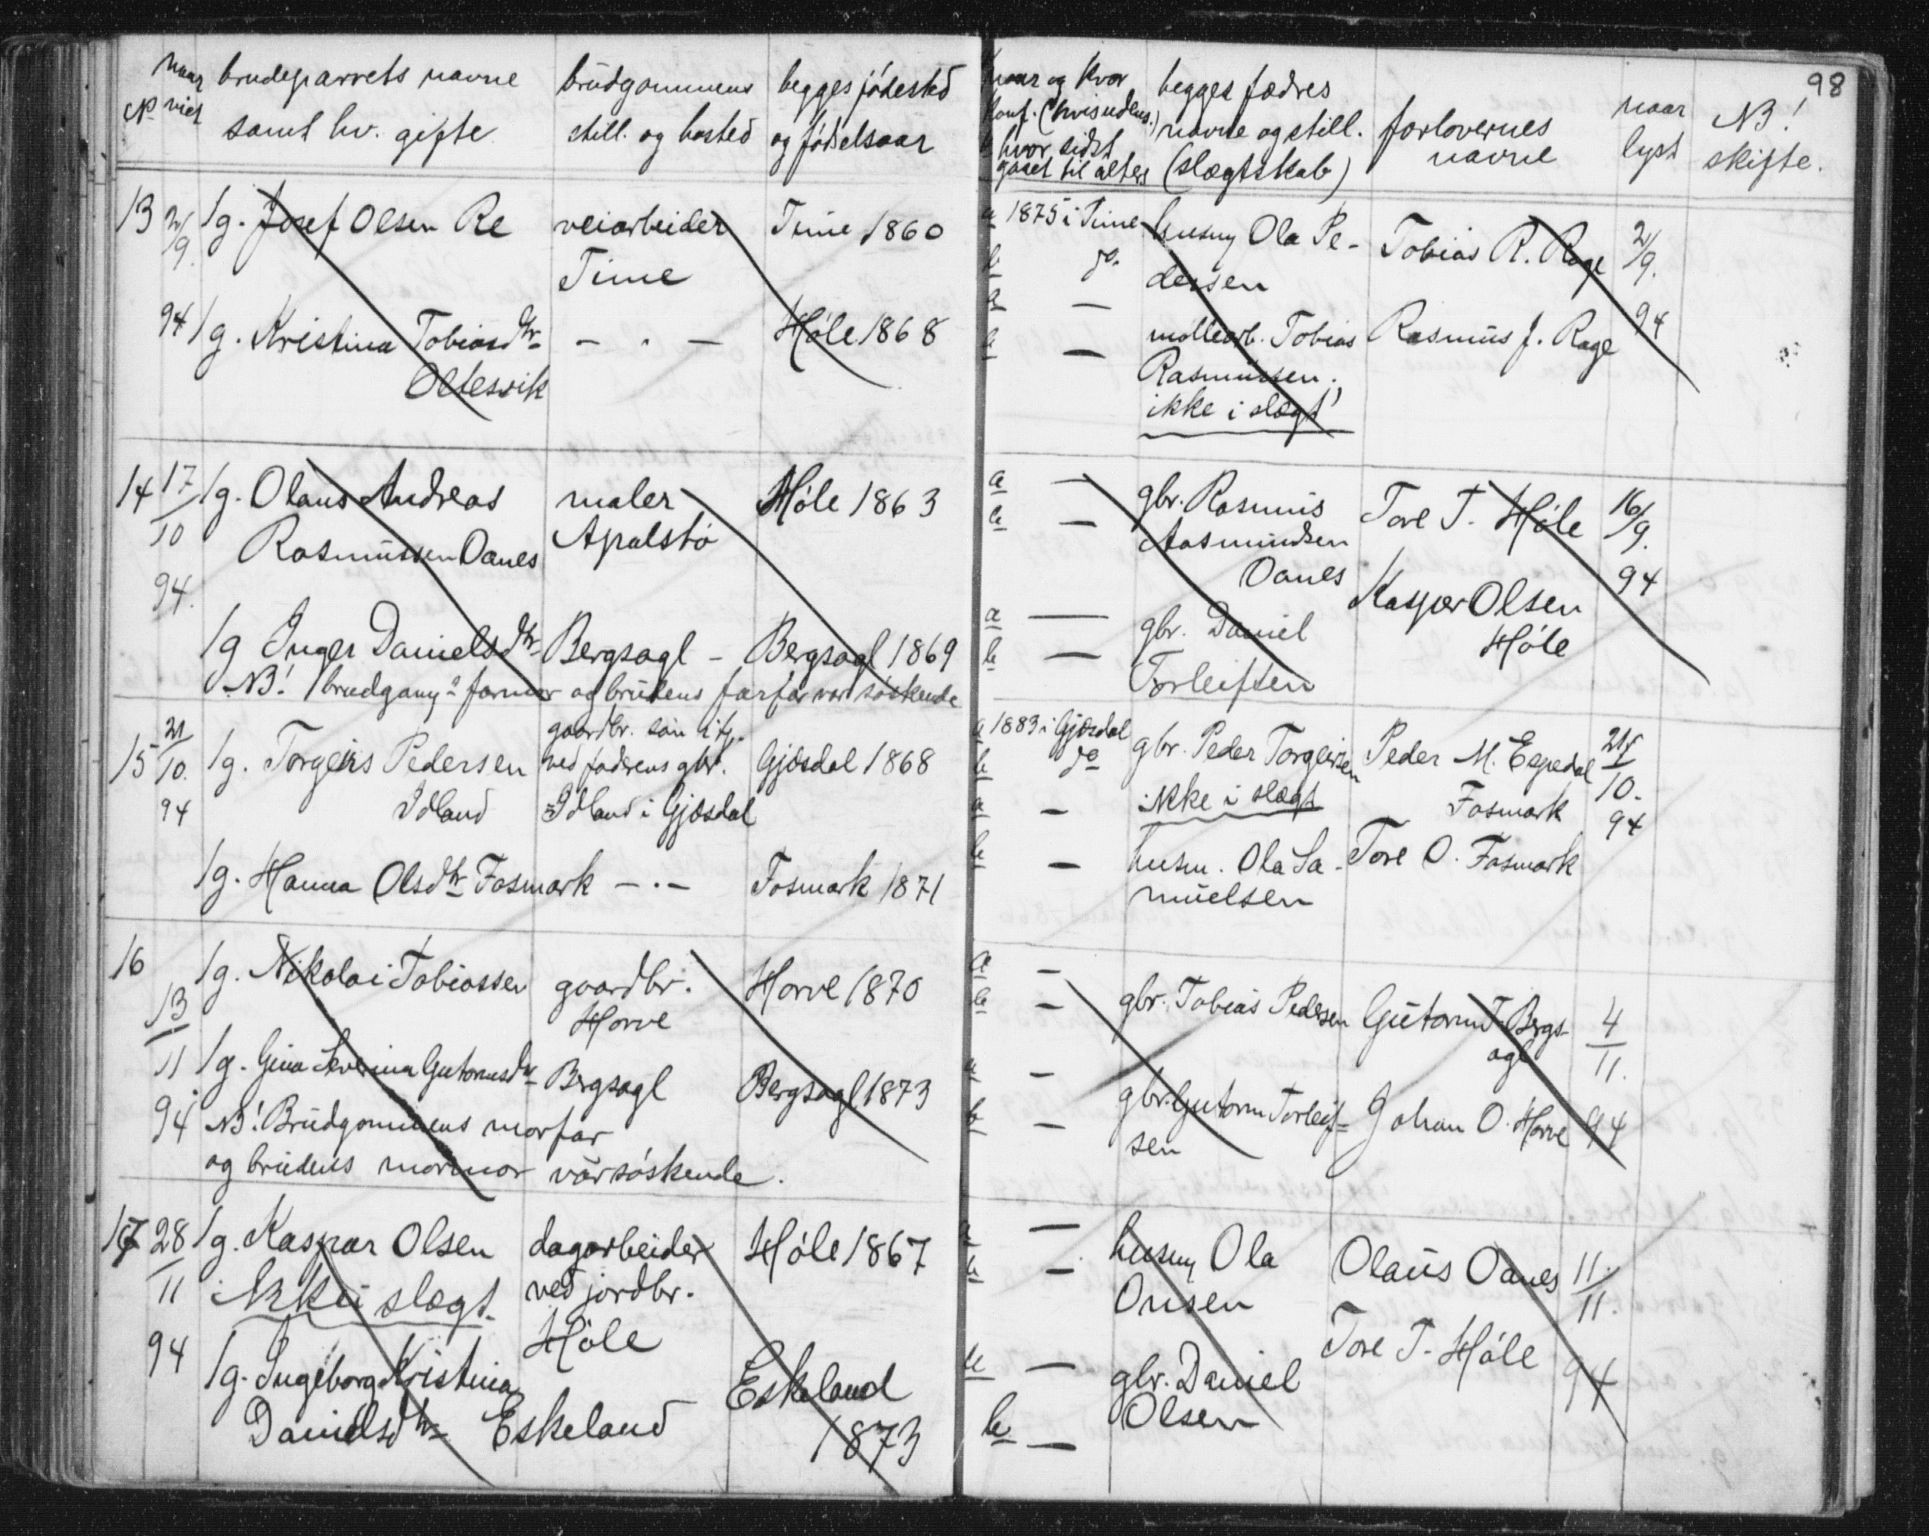 98
No naar viet
brudeparrets navne
samt hv. gifte
brudgommens
still. og bosted
begges fødested
og fødselsaar
naar og hvor
konf. (hvis udens.)
hvor sidst
gaaet til alters
begges fædres
navne og still.
(slægtskab)
forlovernes
navne
naar
lyst
NB!
skifte.
13 2/9. 94
1g. Josef Olsen Re
veiarbeider
Time
Time 1860
1g. Kristina Tobiasdtr
Oltesvik
— . —
Høle 1868
a 1875 i Time
b do.
a —
b —
husm Ola Pe-
dersen
mollearb. Tobias
Rasmussen.
ikke i slægt!
Tobias R. Rage
Rasmus J. Rage
2/9.
94
14 17/10 94.
1g. Olaus Andreas
Rasmussen Oanes
maler
Apalstø
Høle 1863
1g Inger Danielsdtr
Bergsagl –
Bergsagl 1869
NB! brudgoms farmor og brudens farfar var søskende
a —
b —
a —
b —
gbr. Rasmus
Aasmundsen
Oanes
gbr. Daniel
Torleifsen
Tore T. Høle
Kaspar Olsen
Høle
16/9.
94
15 21/10. 94
1g. Torgeirs Pedersen
Idland
gaardbr. søn
ved faderens gbr.
Idland i Gjæsdal
Gjæsdal 1868
1g. Hanna Olsdtr Fosmark
— . —
Fosmark 1871
a 1883 i Gjæsdal
b do
a —
b —
gbr. Peder Torgeirsen
ikke i slægt
husm. Ola Sa-
muelsen
Peder M. Espedal
Fosmark
Tore O. Fosmark
21/10.
94
16 13/11 94
1g. Nikolai Tobiassen
gaardbr.
Horve
Horve 1870
1g. Gina Severina Gutormsdtr
Bergsagl
Bergsagl 1873
NB! Brudgommens morfar
og brudens mormor var søskende.
a —
b —
a —
b —
gbr. Tobias Pedersen
gbr. Gutorm Torleif-
sen
Gutorm T. Bergs-
agl
Johan O. Horve
4/11.
94
17 28/11 94
1g. Kaspar Olsen
ikke i slægt.
dagarbeider
ved jordbr.
Høle
Høle 1867
1g. Ingeborg Kristina
Danielsdtr
Eskeland
Eskeland
1873
a —
b —
a —
b —
husm Ola
Onsen
gbr. Daniel
Olsen
Olaus Oanes
Tore T. Høle
11/11.
94